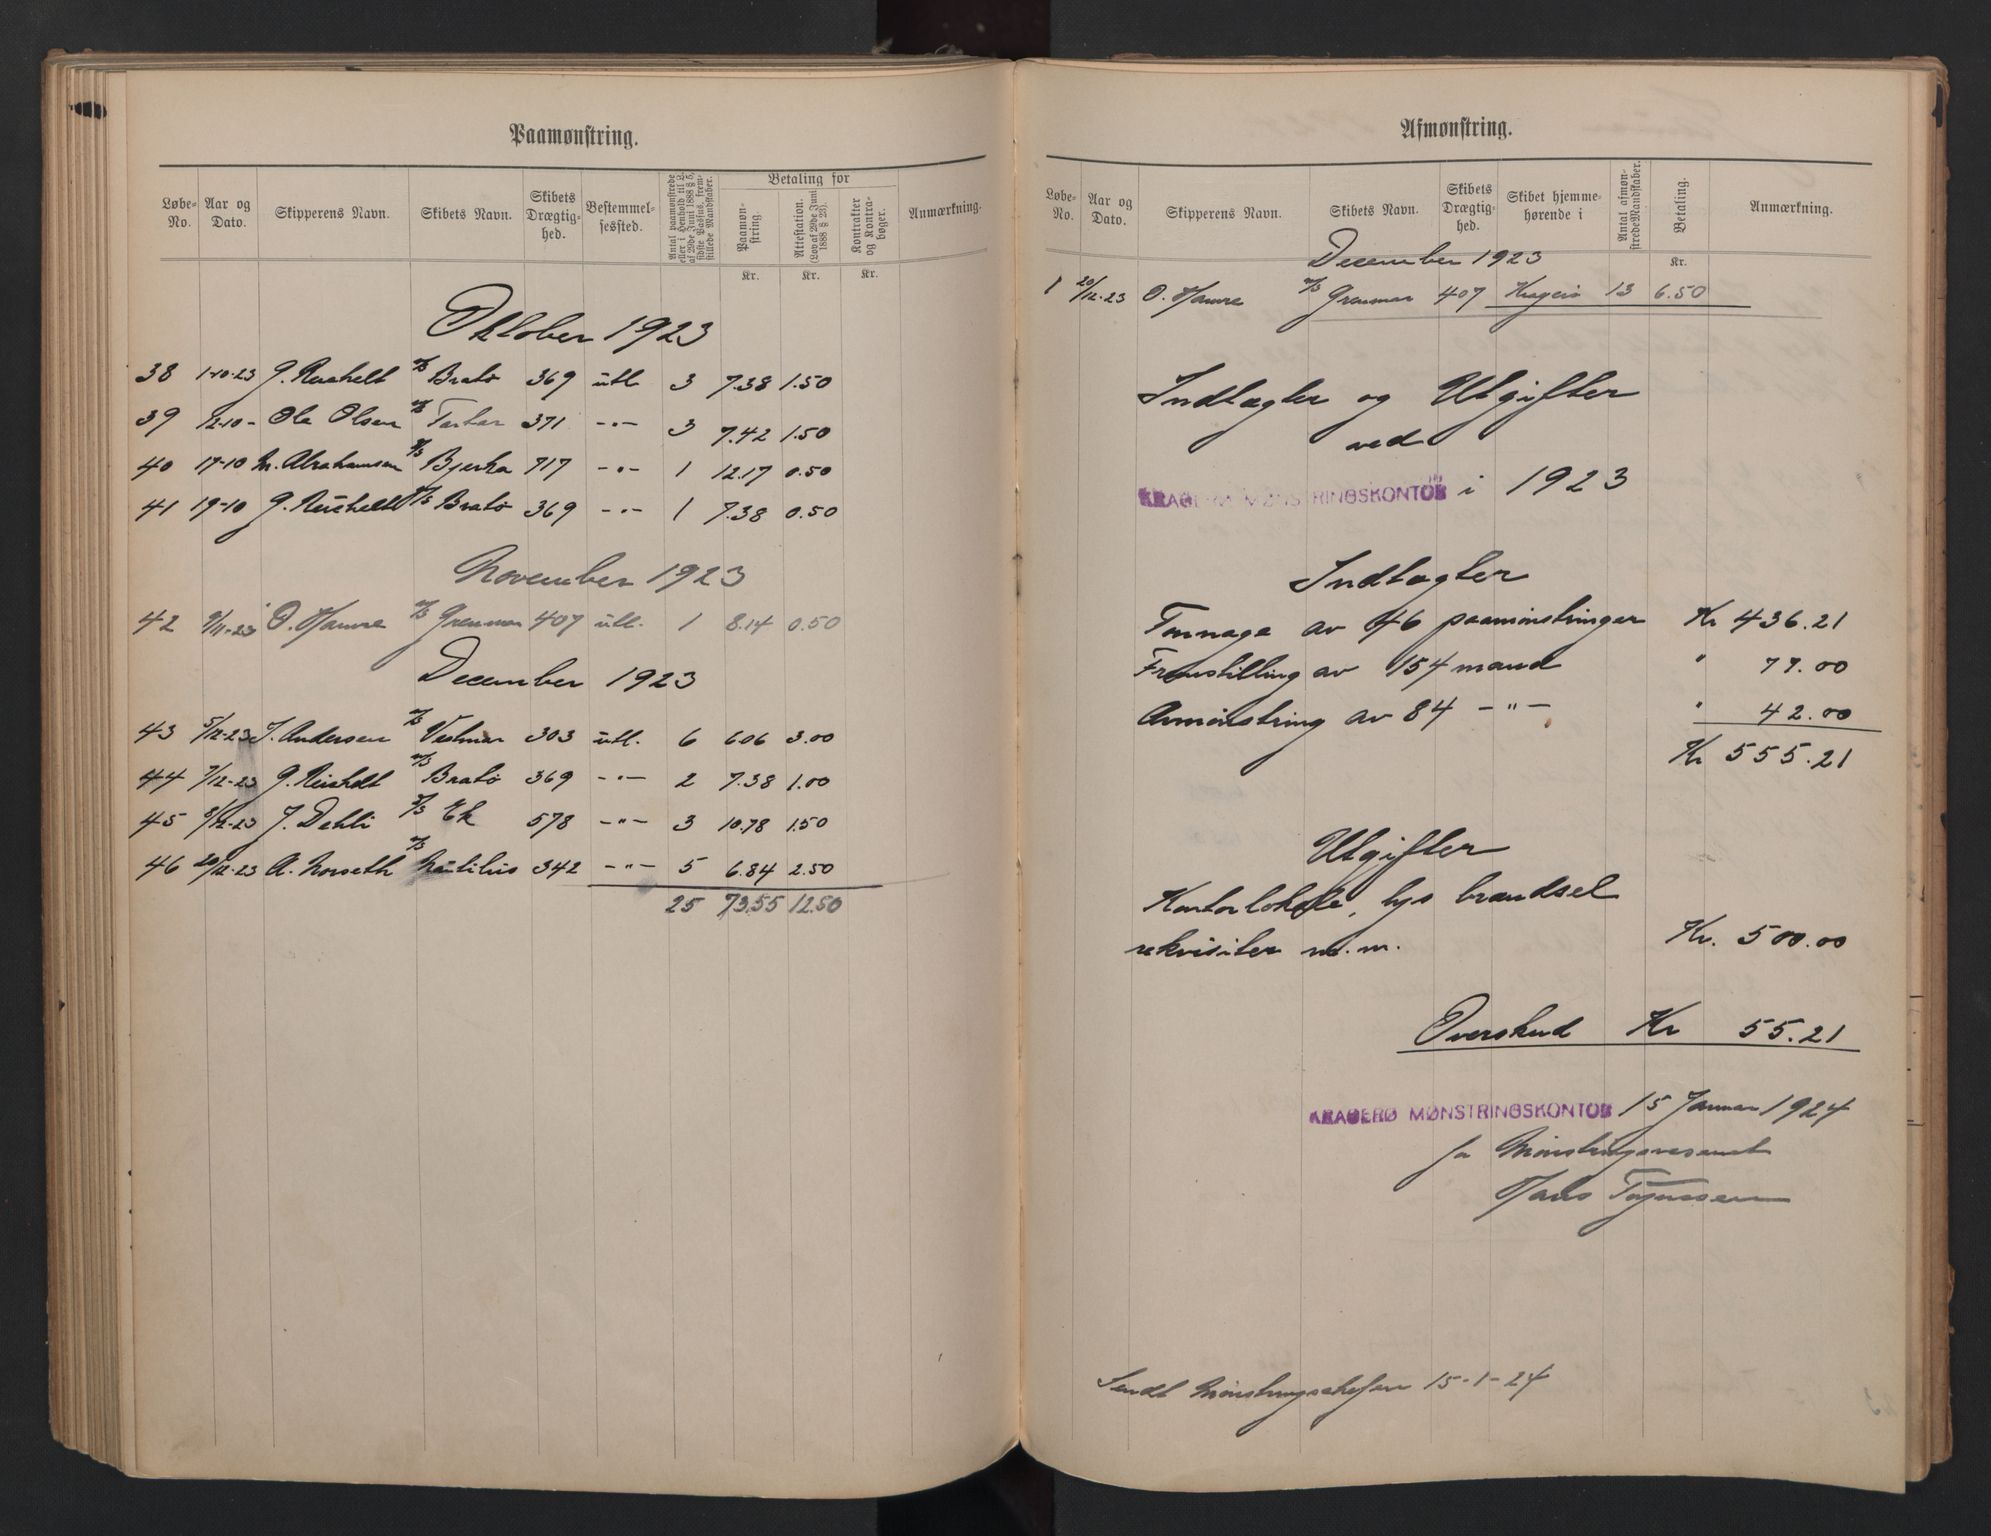 Paamønstring.
Løbe-No. Aar og Dato. Skipperens Navn. Skibets Navn. Skibets Drægtighed. Bestemmelsessted. Antal paamønstrede eller i Henhold til L. af 29de Juni 1888 § 5, sidste Passus, fremstillede Mandskaber. Betaling for Paamønstring. Attestation. (Lov af 29de Juni 1888 § 23). Kontrakter og Kontrabøger. Anmærkning.
Kr. Kr. Kr.
Oktober 1923
38 1-10-23 G. Reichelt M/S Bratø 369 utl. 3 7.38 1.50
39 12-10- Ole Olsen M/S Tartar 371 -"- 3 7.42 1.50
40 17-10 M. Abrahamsen D/S Bjerka 717 -"- 1 12.17 0.50
41 19-10 G. Reichelt M/S Bratø 369 -"- 1 7.38 0.50
November 1923
42 9/11-23 O. Hamre M/S Grenmar 407 utl. 1 8.14 0.50
December 1923
43 5/12-23 J. Andersen M/S Vestmar 303 utl. 6 6.06 3.00
44 7/12-23 G. Reichelt M/S Bratø 369 -"- 2 7.38 1.00
45 8/12-23 J. Dehli D/S Ek 578 -"- 3 10.78 1.50
46 20/12-23 A. Norseth M/S Nautilus 342 -"- 5 6.84 2.50
25 73.55 12.50
Afmønstring.
Løbe-No. Aar og Dato. Skipperens Navn. Skibets Navn. Skibets Drægtighed. Skibet hjemmehørende i Antal afmønstrede Mandskaber. Betaling. Anmærkning.
Kr.
December 1923
1 20/12-23 O. Hamre M/S Grenmar 407 Kragerø 13 6.50
Indtægter og Utgifter
ved
KRAGERØ MØNSTRINGSKONTOR i 1923
Indtægter
Tonnage av 46 paamønstringer Kr 436.21
Fremstilling av 154 mand " 77.00
Avmønstring av 84 -"- " 42.00
Kr 555.21
Utgifter
Kontorlokale, lys brændsel
rekvisiter m.m. Kr. 500.00
Overskud Kr 55.21
KRAGERØ MØNSTRINGSKONTOR 15 Januar 1924
for Mønstringsvæsenet
Hans
Sendt Mønstringschefen 15-1-24